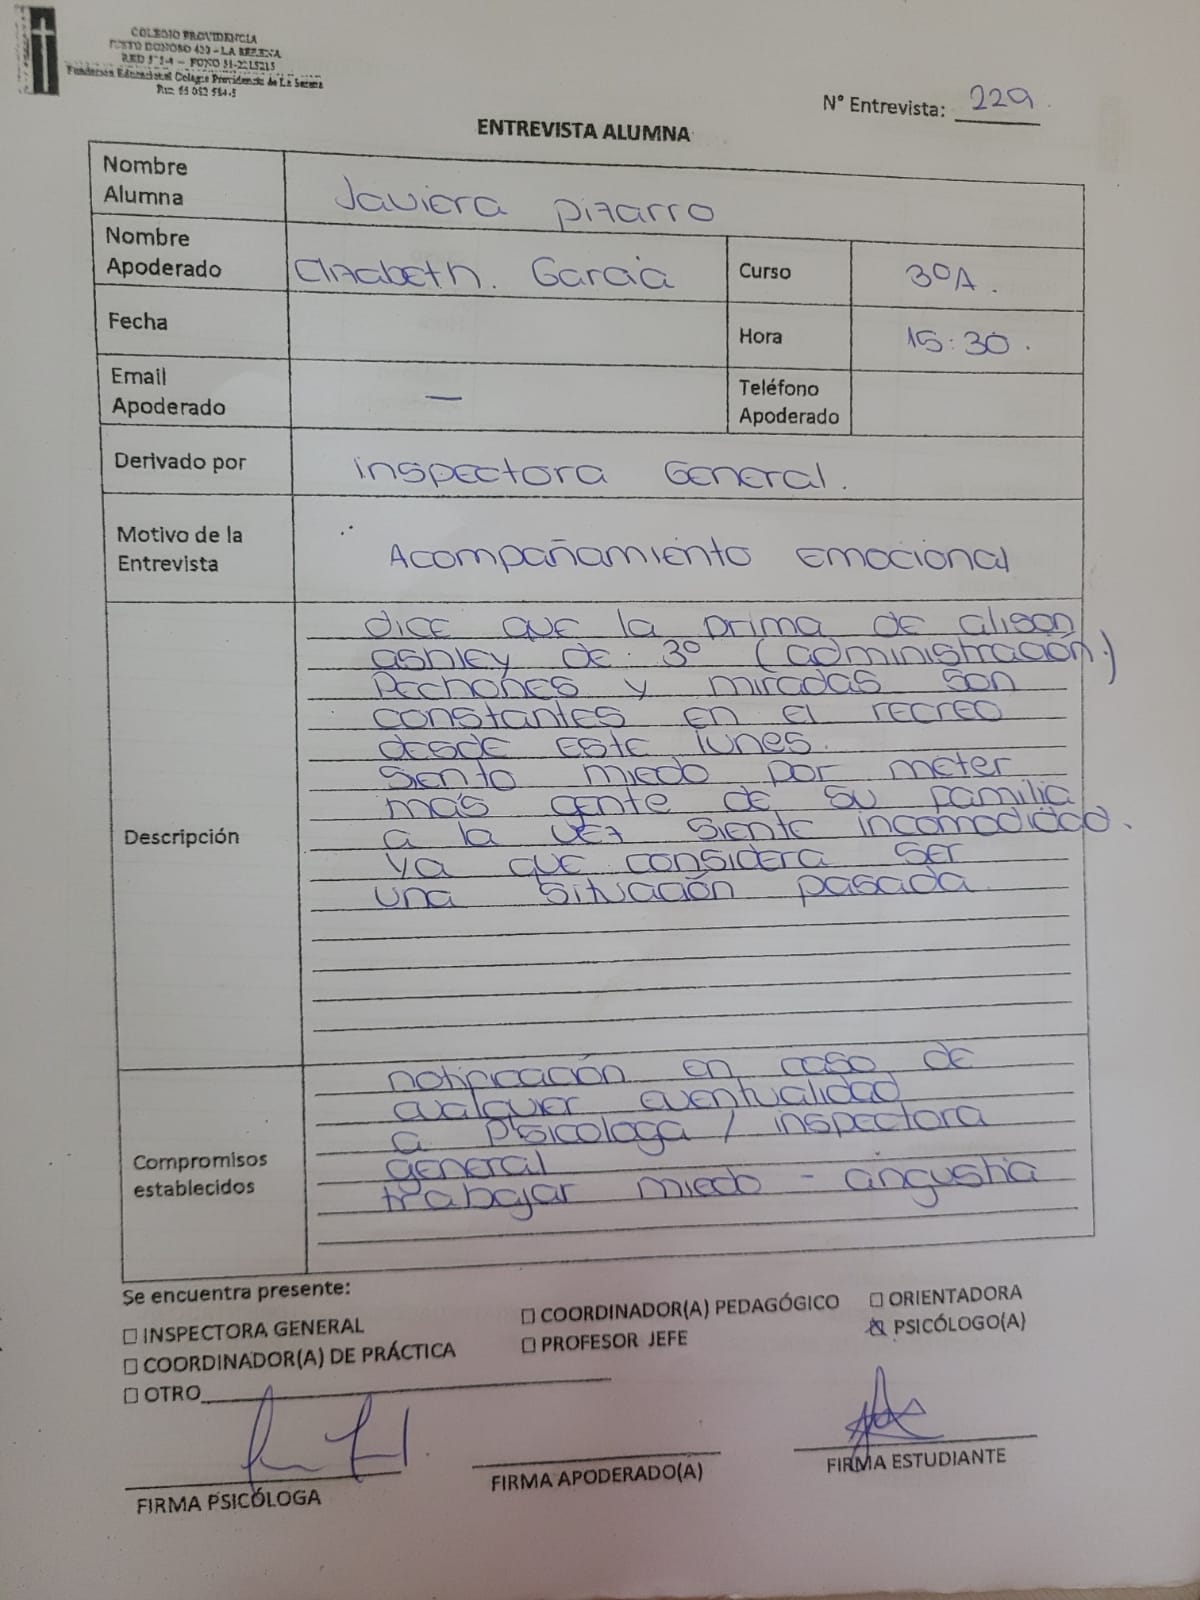 COLEGIO PROVIDENCIA
JUSTO DONOSO 420 - LA SERENA
FONO 51-2215215
Fundación Educacional Colegio Providencia de La Serena
N° Entrevista: 229
ENTREVISTA ALUMNA
Nombre Alumna
Javiera Pizarro
Nombre Apoderado
Elizabeth. García
Curso
3ºA.
Fecha
Hora
15:30.
Email Apoderado
—
Teléfono Apoderado
Derivado por
inspectora General.
Motivo de la Entrevista
Acompañamiento Emocional
Descripción
dice que la prima de alison
ashley de 3º (administración.)
Pechones y miradas son
constantes en el recreo
desde este lunes.
siento miedo por meter
más gente de su familia
a la vez siente incomodidad.
ya que considera ser
una situación pasada
Compromisos establecidos
notificación en caso de
cualquier eventualidad
a Psicologa / inspectora
general
trabajar miedo - angustia
Se encuentra presente:
☐ INSPECTORA GENERAL
☐ COORDINADOR(A) PEDAGÓGICO
☐ ORIENTADORA
☐ COORDINADOR(A) DE PRÁCTICA
☐ PROFESOR JEFE
☒ PSICÓLOGO(A)
☐ OTRO
FIRMA PSICÓLOGA
FIRMA APODERADO(A)
FIRMA ESTUDIANTE